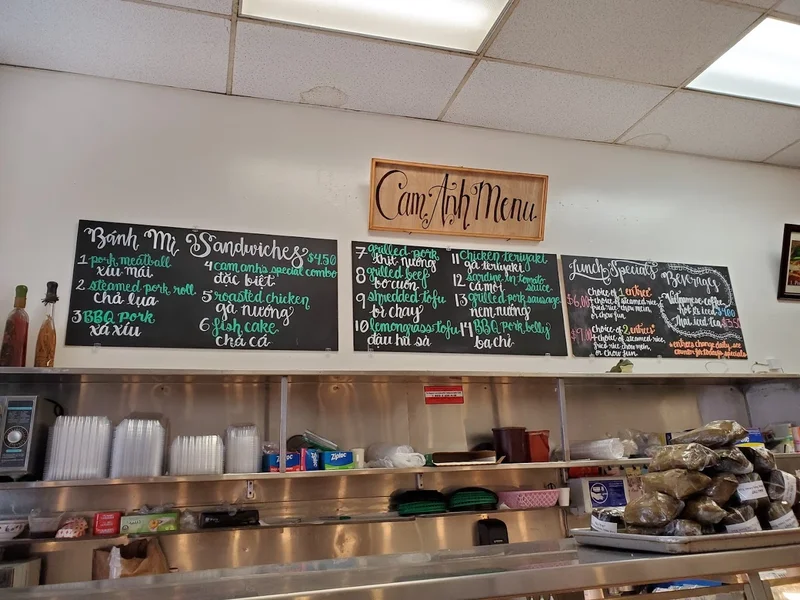 Cam Anh Menu
Bánh Mì Sandwiches $4.50
1 pork meatball
xíu mái
2 steamed pork roll
chả lụa
3 BBQ pork
xá xíu
4 cam anh's special combo
đặc biệt
5 roasted chicken
gà nướng
6 fish cake
chả cá
7 grilled pork
thịt nướng
8 grilled beef
bò cuốn
9 shredded tofu
bì chay
10 lemongrass tofu
đậu hũ sả
11 Chicken teriyaki
gà teriyaki
12 sardine in tomato
sauce
cá mòi
13 grilled pork sausage
nem nướng
14 BBQ pork belly
ba chỉ
Lunch Specials
$6.00 choice of 1 entree
+ choice of steamed rice,
fried rice, chow mein,
or chow fun
choice of 2 entrees
+ choice of steamed rice,
fried rice, chow mein,
or chow fun
Beverages
Vietnamese coffee
hot or iced
Thai iced tea $3.50
* entrees change daily, see
counter for today's specials
Ziploc
Ziploc